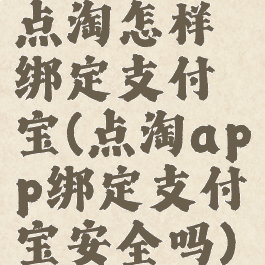 点淘怎样
绑定支付
宝(点淘ap
p绑定支付
宝安全吗)